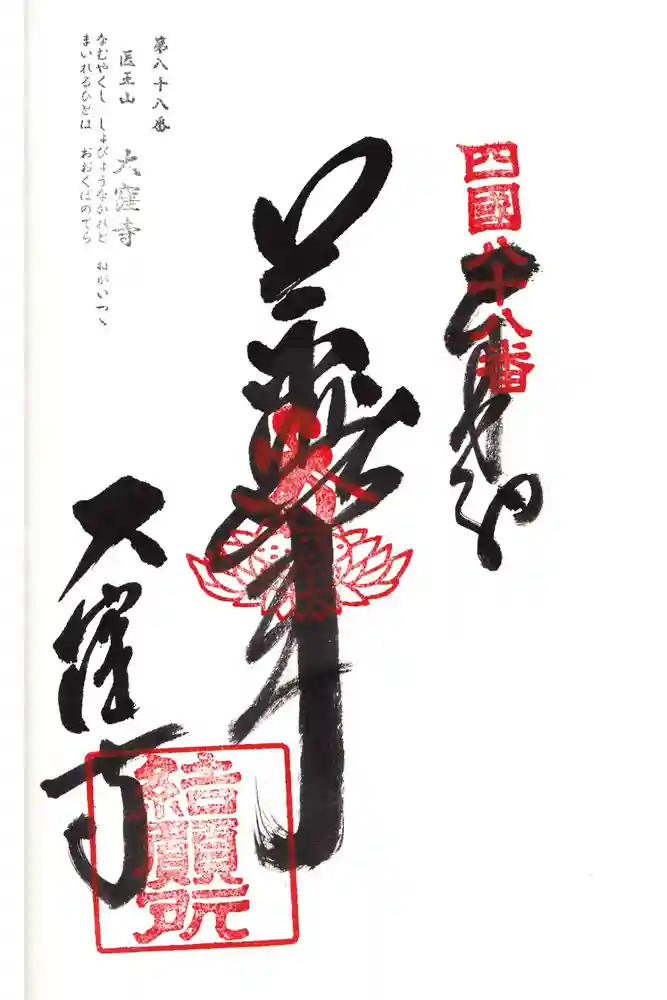 四國八十八番
奉納
第八十八番
医王山 大窪寺
なむやくし しょびょうなかれと ねがいつゝ
まいれるひとは おおくぼのてら
大窪寺
結願